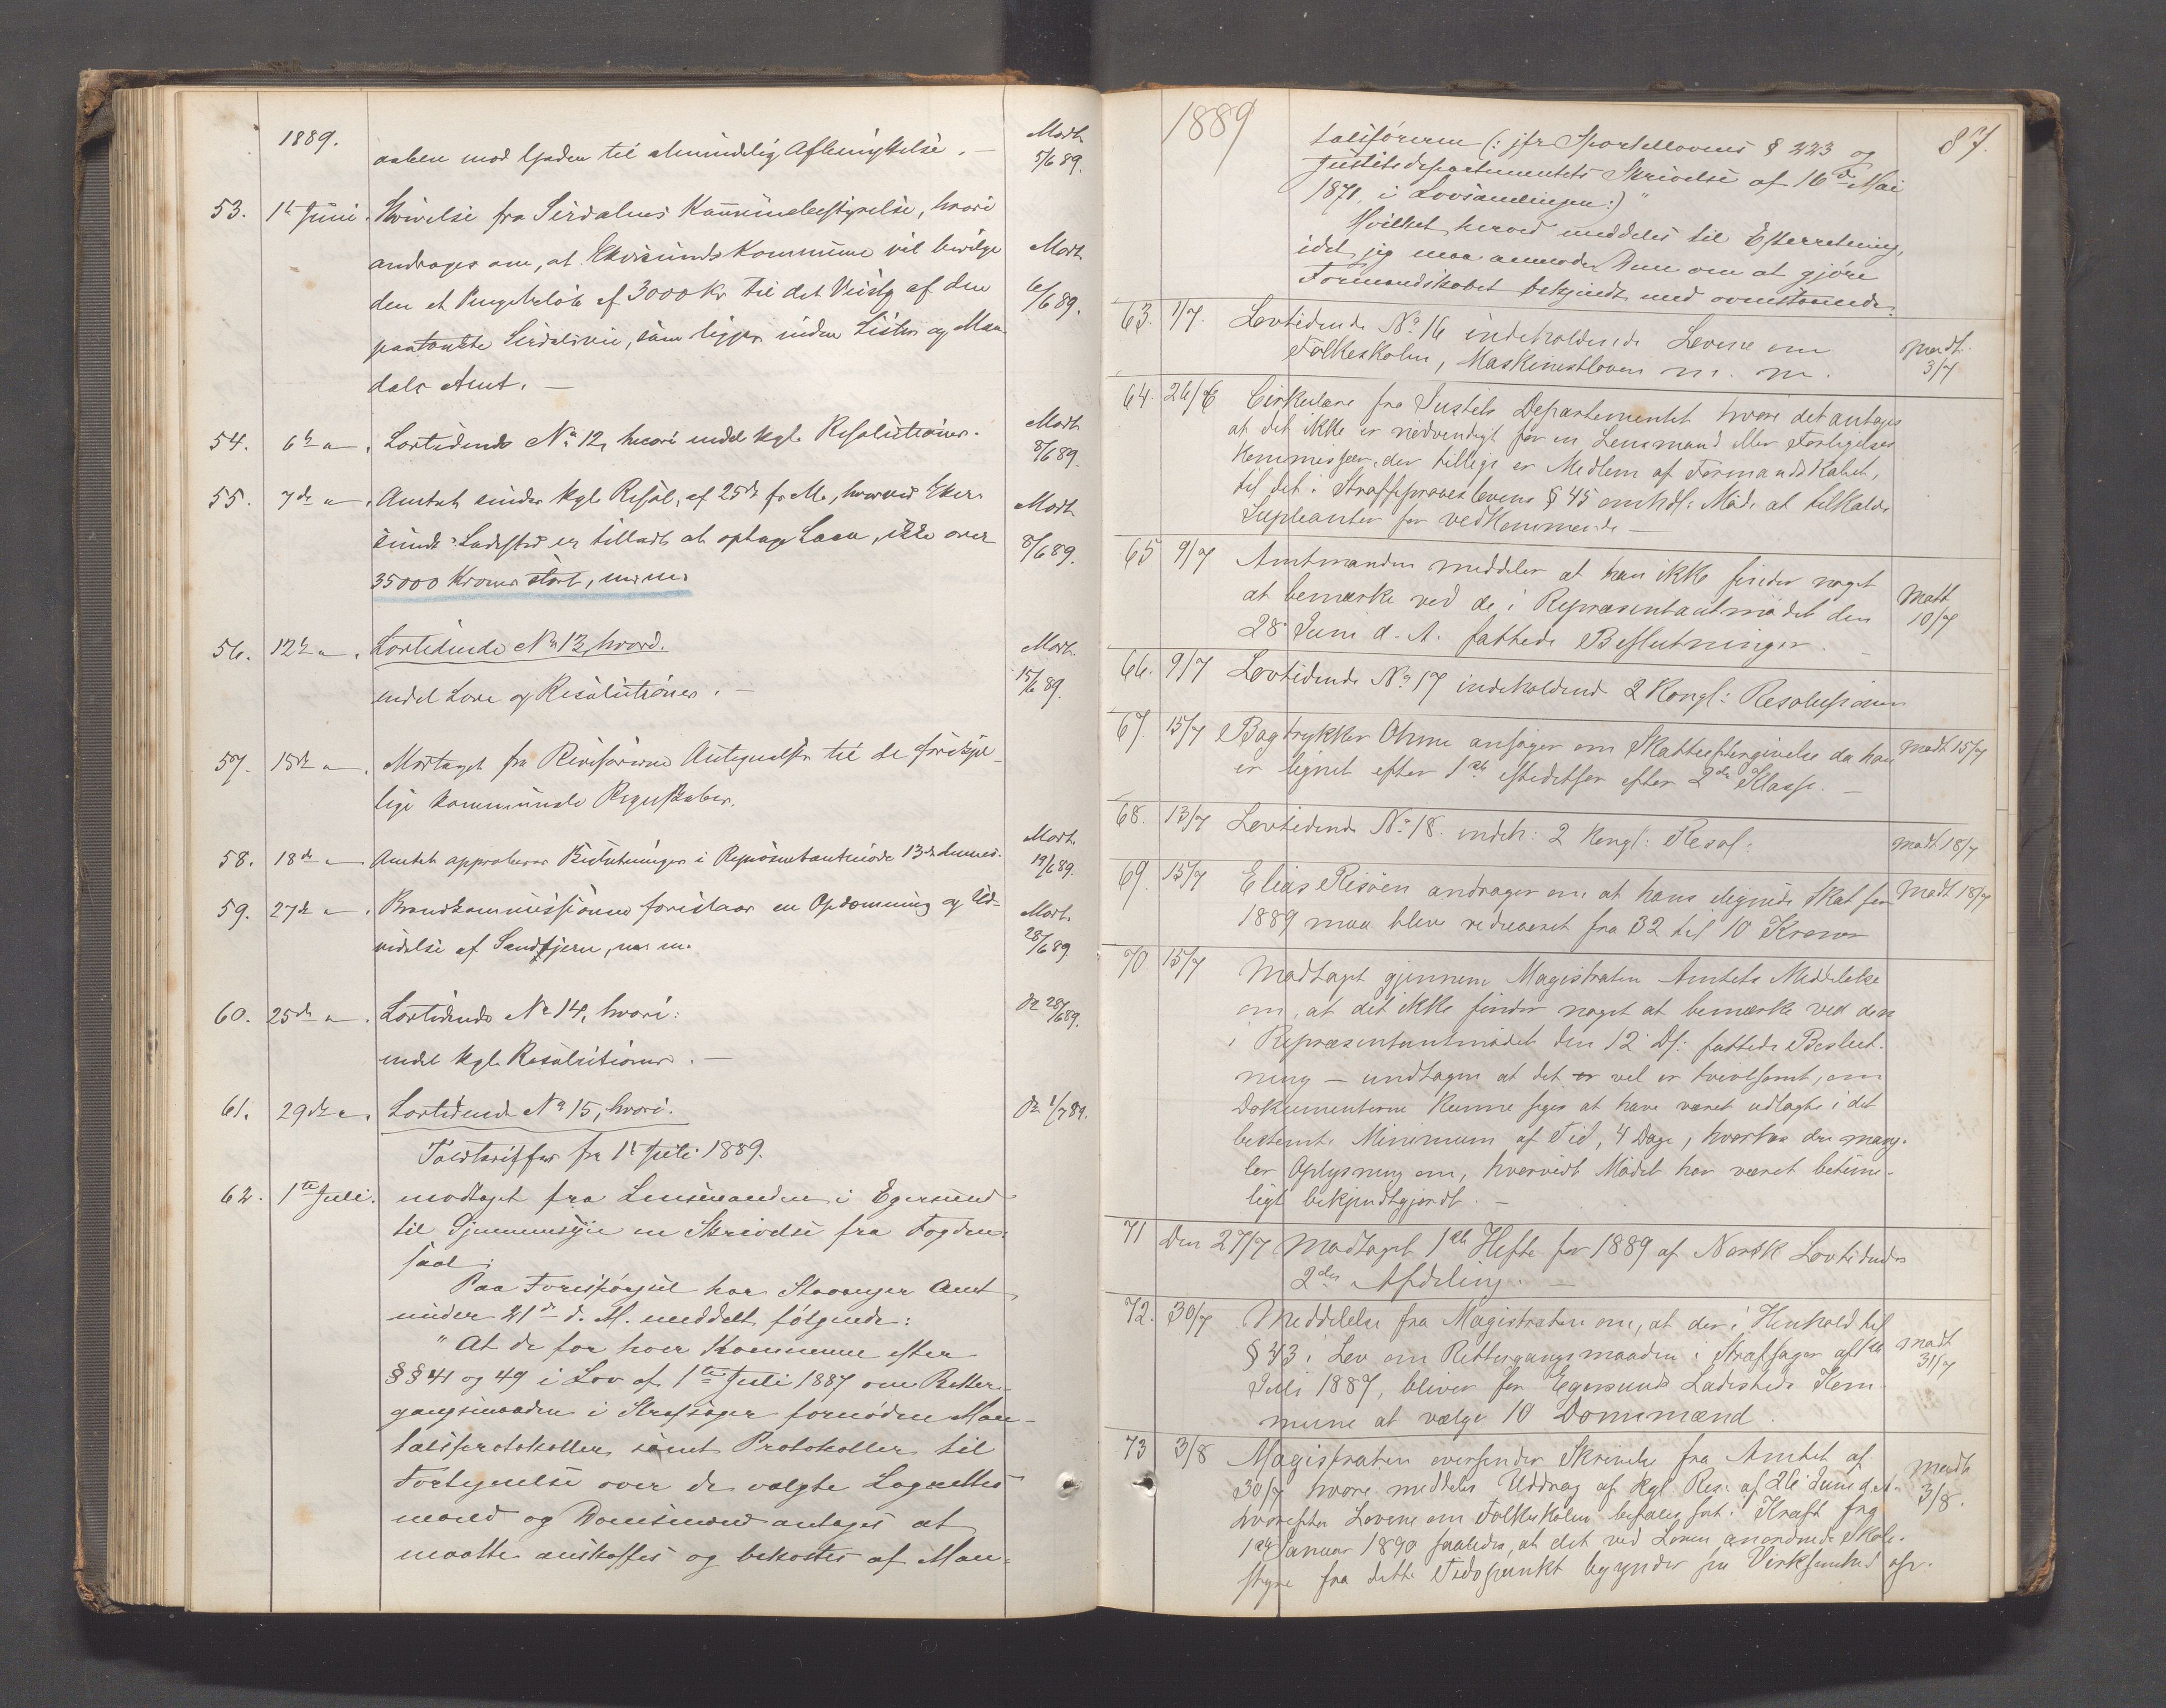 1889.
aaben mod Gaden til almindelig Afbenyttelse. —
Modt. 5/6 89.
53. 1ste Juni. Skrivelse fra Sirdalens Kommunebestyrelse, hvori
andrages om, at Ekersunds Kommune vil bevilge
Modt. 6/6 89.
den et Pengebeløb af 3000 Kr. til det Veistk. af den
paatænkte Sirdalsvei, som ligger inden Lister og Man-
dals Amt. —
54. 6te " . Lovtidende No 12, hvori endel kgl. Resolutioner.
Modt. 8/6 89.
55. 7de " . Amtet sender kgl. Resol. af 25de f. M., hvorved Eker-
Modt. 8/6 89.
sunds Ladested er tilladt at optage Laan, ikke over
35000 Kroner stort, m. m.
56. 12te " . Lovtidende No 13, hvori.
Modt. 15/6 89.
endel Love og Resolutioner. —
57. 15de " . Modtaget fra Revisorerne Antegnelser til de forskjel-
lige kommunale Regnskaber.
58. 18de " Amtet approberer Beslutninger i Repræsentantmøde 13de dennes.
Modt. 19/6 89.
59. 27de " . Brandkommissionen foreslaar en Opdæmning og Ud-
Modt. 28/6 89
videlse af Sandtjern, m. m.
60. 25de " . Lovtidende No 14, hvori:
Do 28/6 89.
endel kgl. Resolutioner. —
61. 29de " . Lovtidende No 15, hvori.
Do 1/7 89.
Toldtariffer fra 1ste Juli 1889.
62. 1ste Juli. modtaget fra Lensmanden i Egersund
til Gjennemsyn en Skrivelse fra Fogden
saal:
Paa Forespørgsel har Stavanger Amt
under 21de d. M. meddelt følgende:
" At de for hver Kommune efter
§§ 41 og 49 i Lov af 1ste Juli 1887 om Retter-
gangsmaaden i Strafsager fornødne Man-
talsprotokoller samt Protokoller til
Fortegnelse over de valgte Lagrettes-
mænd og Domsmænd antages at
maatte anskaffes og bekostes af Man-
1889
87.
talsføreren (: jfr Sportellovens § 223 og
Justitsdepartementets Skrivelse af 16de Mai
1871, i Lovsamlingen:)"
Hvilket herved meddeles til Efterretning,
idet jeg maa anmode Dem om at gjøre
Formandskabet bekjendt med ovenstaaende.
63. 1/7. Lovtidende No 16 indeholdende Lovene om
Folkeskolen, Maskinistloven m. m.
Modt. 3/7
64. 26/6 Cirkulære fra Justits Departementet hvori det antages
at det ikke er nødvendigt for en Lensmand eller Forligelses
Kommissær, der tillige er Medlem af Formandskabet,
til det i Straffeproceslovens § 45 omhdl: Møde at tilkalde
Supleanter for vedkommende —
65 9/7 Amtmanden meddeler at han ikke finder noget
at bemærke ved de i Repræsentantmødet den
28 Juni d. A. fattede Beslutninger.
Modt 10/7
66. 9/7 Lovtidende No 17 indeholdende 2 Kongl: Resolutioner
67. 15/7 Bogtrykker Ohme ansøger om Skatteeftergivelse da han
er lignet efter 1ste istedetfor efter 2den Klasse. —
Modt 15/7
68. 13/7 Lovtidende No 18. indeh: 2 Kongl: Resol.
Modt 18/7
69. 15/7 Elias Risøen andrager om at hans ilignede Skat for
1889 maa blive reduceret fra 32 til 10 Kroner
Modt 18/7
70 15/7 Modtaget gjennem Magistraten Amtets Meddelelse
om, at det ikke finder noget at bemærke ved den
i Repræsentantmødet den 12 ds: fattede Beslut-
ning — undtagen at det er vel er tvivlsomt, om
Dokumenterne kunne siges at have været udlagte i det
bestemte Minimum af Tid, 4 Dage, hvorhos der mang-
ler Oplysning om, hvorvidt Mødet har været betime-
ligt bekjendtgjordt. —
71 Den 27/7 Modtaget 1ste Hefte for 1889 af Norsk Lovtidende
2den Afdeling. —
72. 30/7 Meddelelse fra Magistraten om, at der i Henhold til
§ 43 i Lov om Rettergangsmaaden i Strafsager af 1ste
Juli 1887, bliver for Egersunds Ladesteds Kom-
mune at vælge 10 Domsmænd.
Modt 31/7
73 3/8 Magistraten oversender Skrivelse fra Amtet af
30/7 hvori meddeles Uddrag af kgl Res. af 26 Juni d. A.
hvorefter Lovene om Folkeskolen befales sat i Kraft fra
1ste Januar 1890 saaledes, at det ved Loven anordnede Skole-
styre fra dette Tidspunkt begynder sin Virksomhed osv.
Modt 3/8.